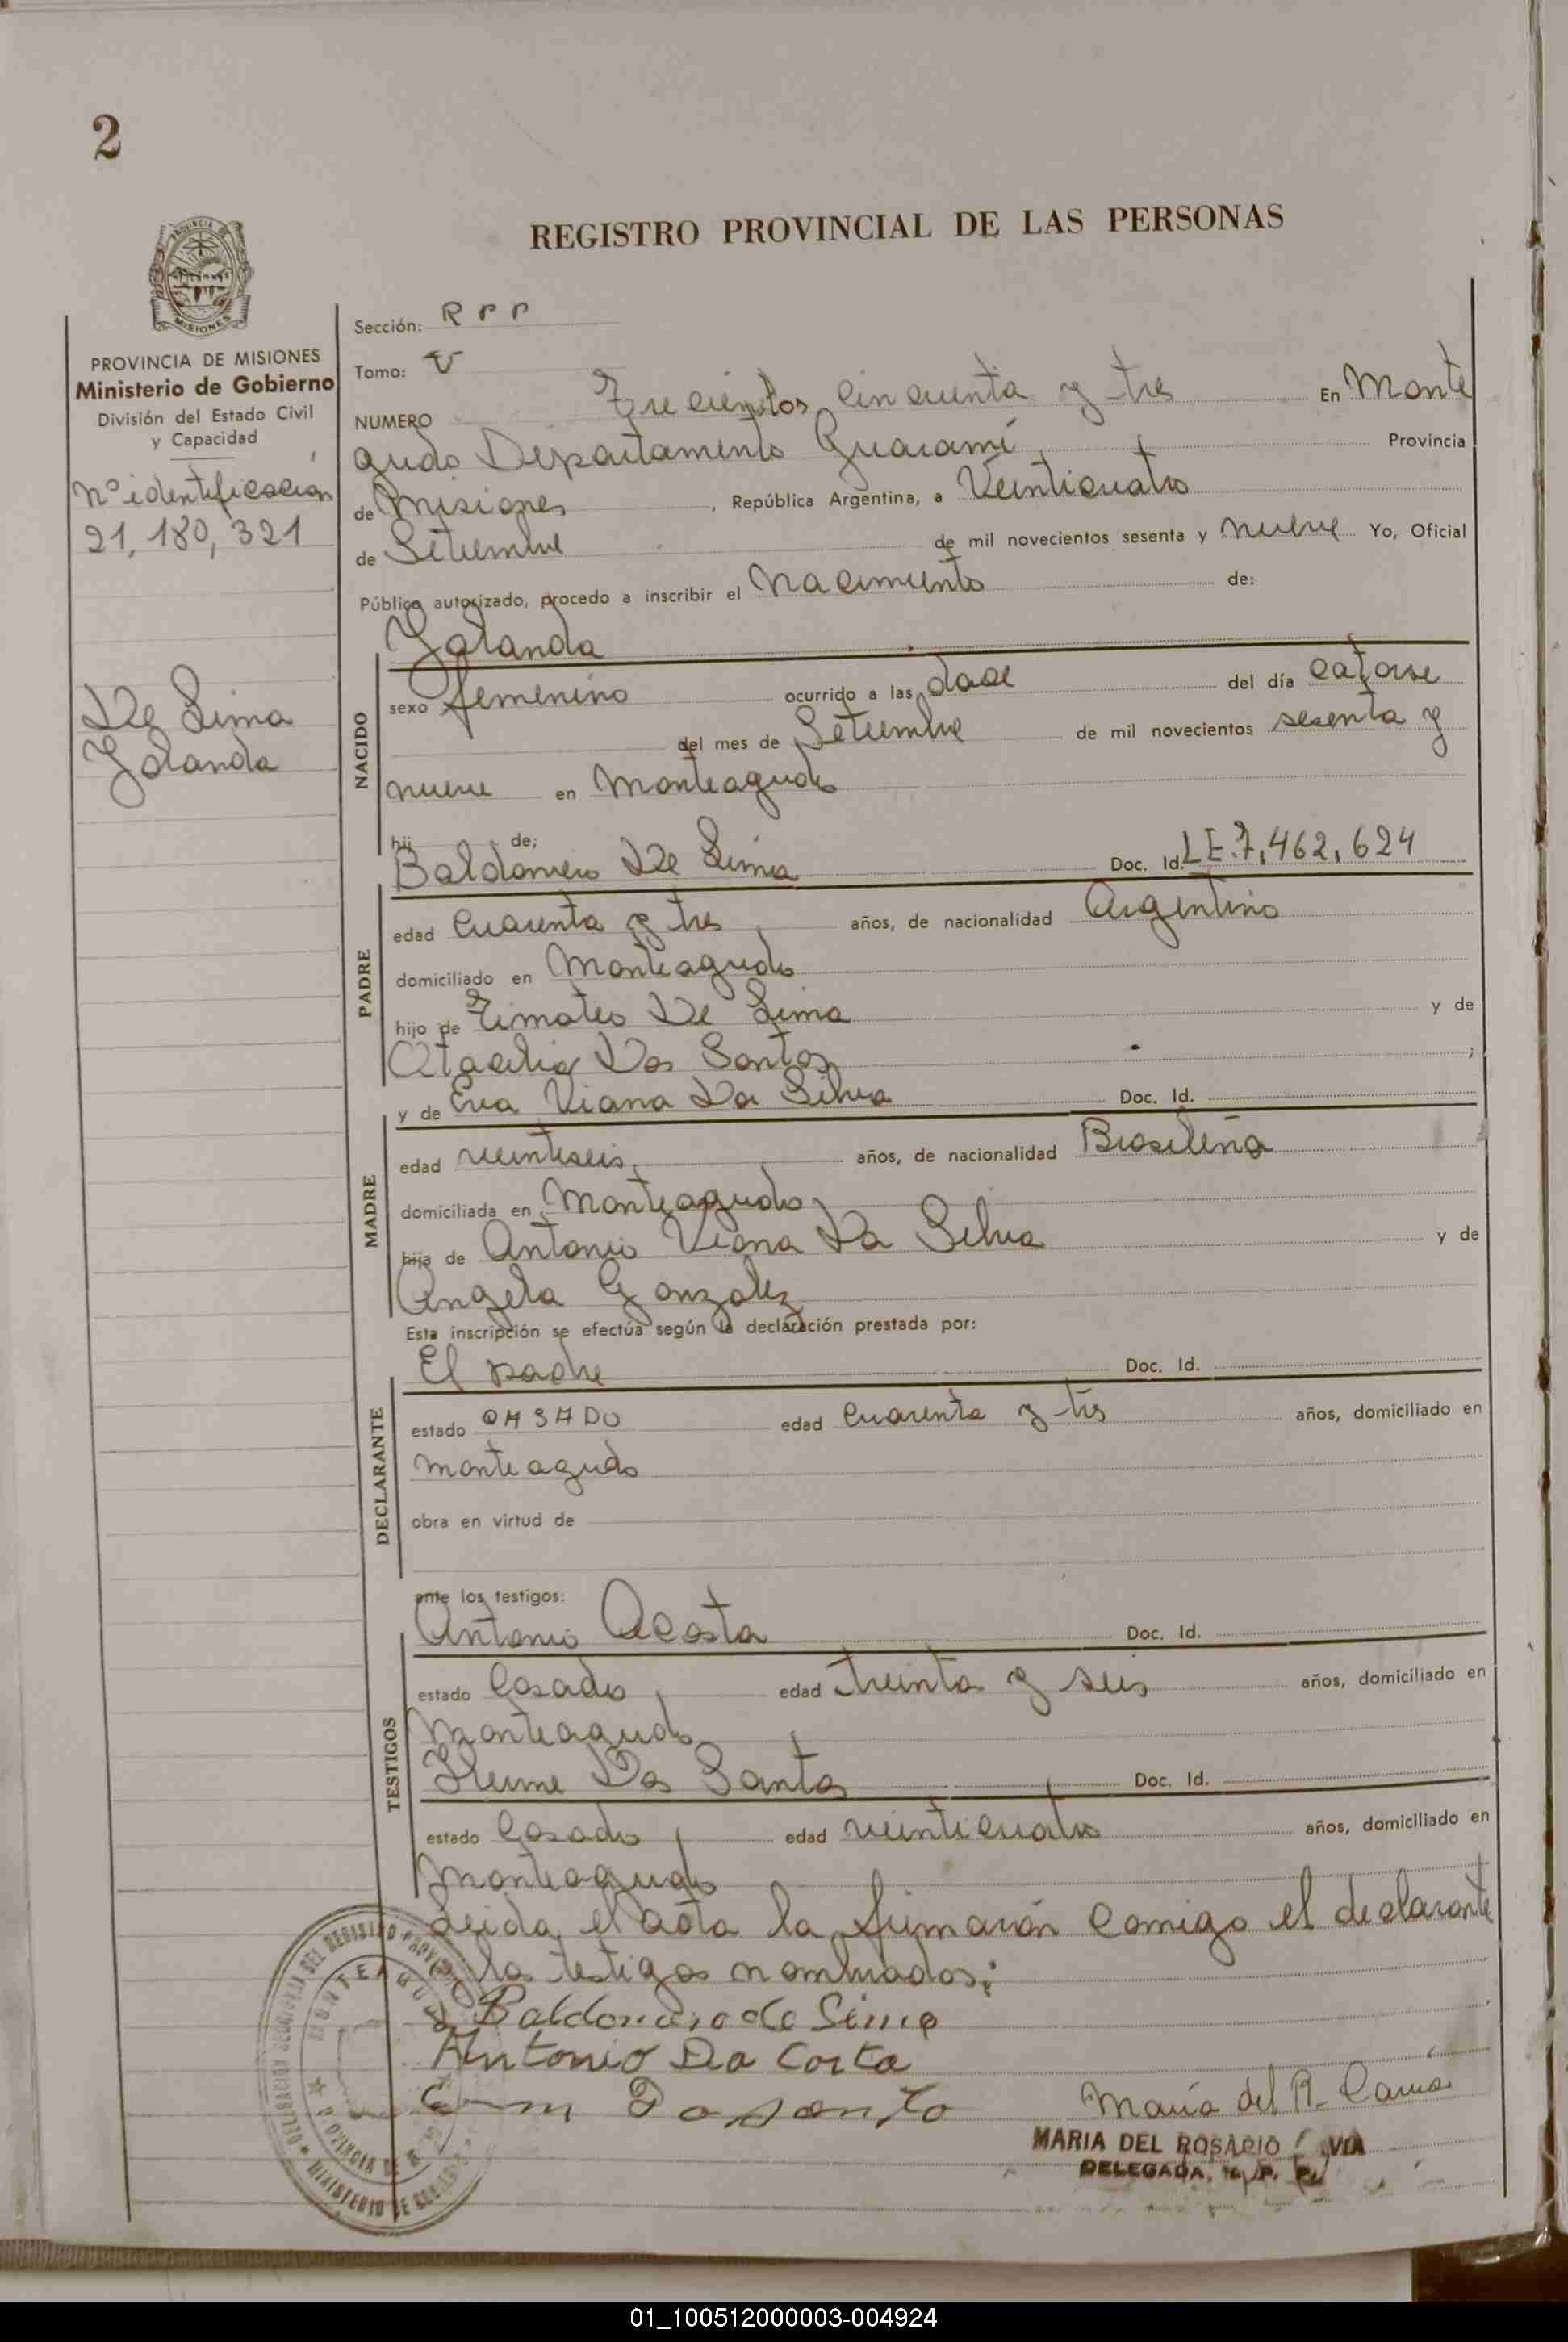 2
REGISTRO PROVINCIAL DE LAS PERSONAS
PROVINCIA DE MISIONES
Ministerio de Gobierno
División del Estado Civil
y Capacidad
Nº identificacion
21,180,321
De Lima
Yolanda
Sección: R P P
Tomo: V
NUMERO Trecientos cincuenta y tres En Monte
agudo Departamento Guarani, Provincia
de Misiones, República Argentina, a Veinticuatro
de Setiembre de mil novecientos sesenta y nueve Yo, Oficial
Público autorizado, procedo a inscribir el nacimiento de:
Yolanda
NACIDO
sexo femenino ocurrido a las doce del día catorse
del mes de Setiembre de mil novecientos sesenta y
nueve en Monteagudo
hij de;
Baldomero De Lima Doc. Id. LE.7,462,624
PADRE
edad cuarenta y tres, años, de nacionalidad Argentino
domiciliado en Monteagudo
hijo de Timoteo De Lima y de
Otacilia Dos Santos ;
y de Eva Viana Da Silva Doc. Id.
MADRE
edad veintiseis, años, de nacionalidad Brasileña
domiciliada en Monteagudo,
hija de Antonio Viana Da Silva y de
Angela Gonzalez
Esta inscripción se efectúa según la declaración prestada por:
El padre Doc. Id.
DECLARANTE
estado CASADO edad cuarenta y tres años, domiciliado en
monteagudo
obra en virtud de
ante los testigos:
Antonio Acosta Doc. Id.
TESTIGOS
estado Casado, edad treinta y seis años, domiciliado en
Monteagudo,
Dos Santos Doc. Id.
estado Casado, edad veinticuatro años, domiciliado en
Monteagudo
Leida el acta la firmarón comigo el declarante
y los testigos nombrados:
Baldomero de Lima
Antonio Da Costa
María del R.
MARIA DEL ROSARIO
DELEGADA, R. P. P.
MONTEAGUDO
PROVINCIA DE
MINISTERIO DE GOBIERNO
01_100512000003-004924